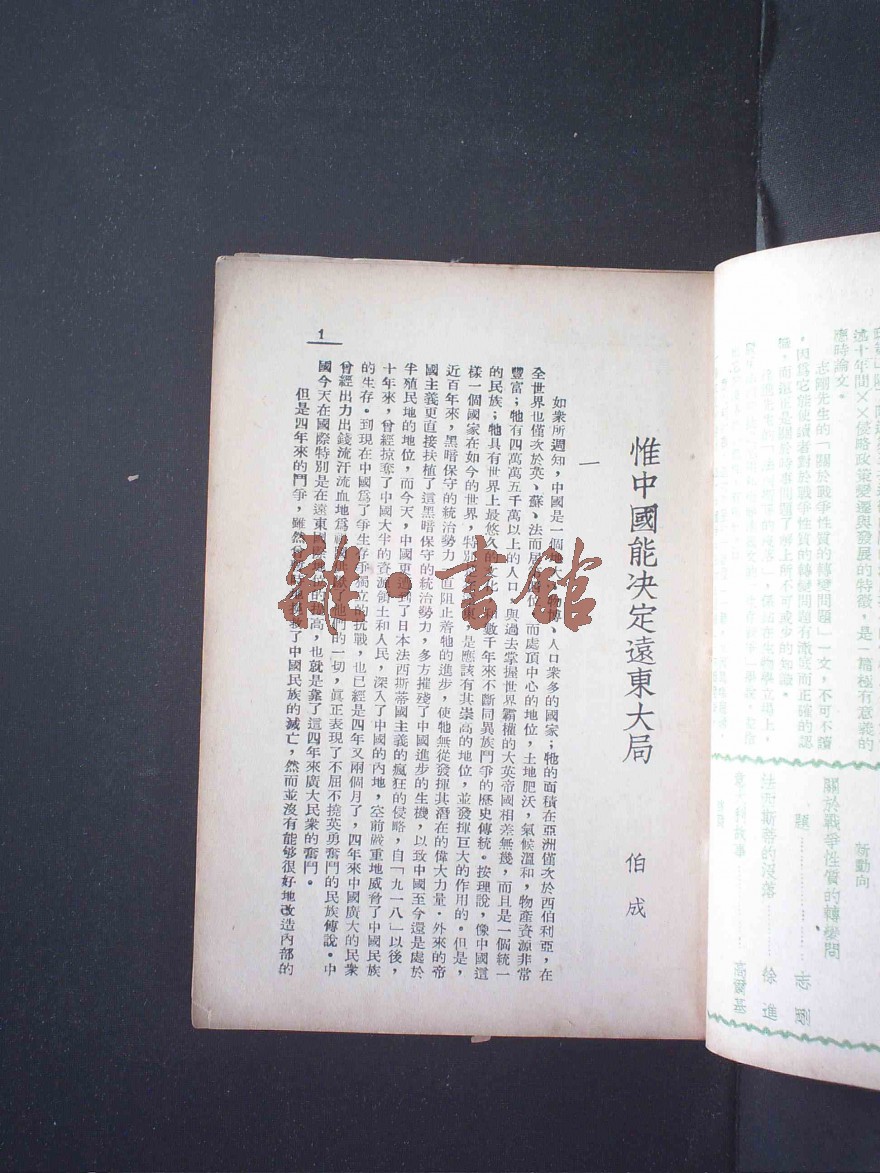 述十年間××侵略政策變遷與發展的特徵，是一篇極有意義的
應時論文。
志剛先生的「關於戰爭性質的轉變問題」一文，不可不讀
，因為它能使讀者對於戰爭性質的轉變問題有澈底而正確的認
新動向
關於戰爭性質的轉變問
題
志剛
法西斯蒂的沒落
徐進
高爾基
惟中國能决定遠東大局
伯成
一
如衆所週知，中國是一個地物博、人口衆多的國家；牠的面積在亞洲僅次於西伯利亞，在
全世界也僅次於英、蘇、法而居而處項中心的地位，土地肥沃，氣候溫和，物產資源非常
豐富；牠有四萬萬五千萬以上的人口，與過去掌握世界霸權的大英帝國相差無幾，而且是一個統一
的民族；牠具有世界上最悠久的文化和數千年來不斷同異族鬥爭的歷史傳統。按理說，像中國這
樣一個國家在如今的世界，特別是應該有其崇高的地位，並發揮巨大的作用的。但是，
近百年來，黑暗保守的統治勢力一直阻止着牠的進步，使牠無從發揮其潛在的偉大力量。外來的帝
國主義更直接扶植了這黑暗保守的統治勢力，多方摧殘了中國進步的生機，以致中國至今還是處於
半殖民地的地位，而今天，中國更遭到了日本法西斯蒂國主義的瘋狂的侵略，自「九一八」以後，
十年來，曾經掠奪了中國大半的資源領土和人民，深入了中國的內地，空前嚴重地威脅了中國民族
的生存。到現在中國爲了爭生存爭獨立的抗戰，也已經是四年又兩個月了，四年來中國廣大的民衆
曾經出力出錢流汗流血地爲祖國供獻了他們的一切，眞正表現了不屈不撓英勇奮鬥的民族傳說。中
國今天在國際特別是在遠東國際地位的提高，也就是靠了這四年來廣大民衆的奮鬥。
但是四年來的鬥爭，雖然挽救了中國民族的滅亡，然而並沒有能够很好地改造內部的
1
雜·書館